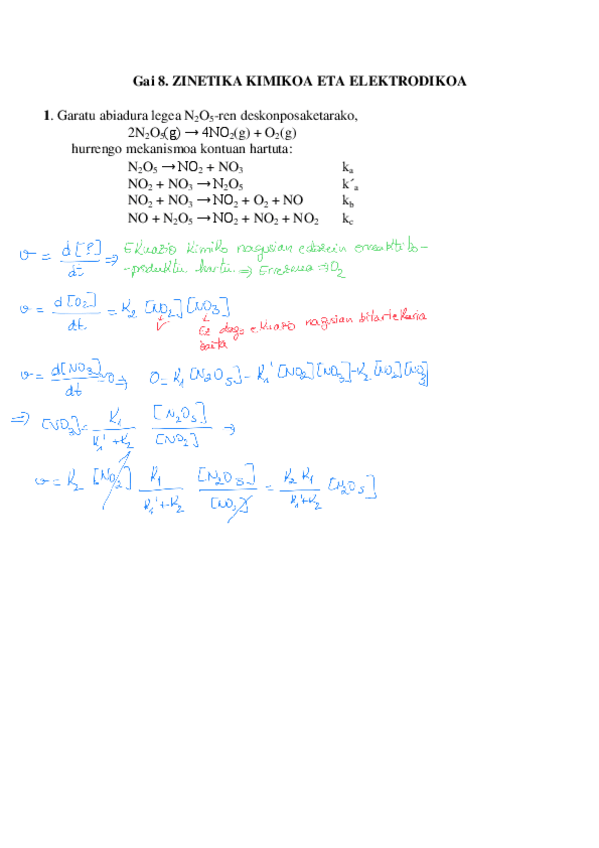 Gai 8. ZINETIKA KIMIKOA ETA ELEKTRODIKOA
1. Garatu abiadura legea N₂O₅-ren deskonposaketarako,
2N₂O₅(g) → 4NO₂(g) + O₂(g)
hurrengo mekanismoa kontuan hartuta:
N₂O₅ → NO₂ + NO₃ kₐ
NO₂ + NO₃ → N₂O₅ k´ₐ
NO₂ + NO₃ → NO₂ + O₂ + NO k_b
NO + N₂O₅ → NO₂ + NO₂ + NO₂ k_c
v = d[P]/dt ⇒ Ekuazio kimiko nagusian edozein erreaktibo-
-produktu hartu. ⇒ Errezena ⇒ O₂
v = d[O₂]/dt = K₂ [NO₂][NO₃]
Ez dago ekuazio nagusian bitartekaria
baita
v = d[NO₃]/dt = 0 → 0 = K₁ [N₂O₅] - K₁' [NO₂][NO₃] - K₂ [NO₂][NO₃]
⇒ [NO₃] = K₁/(K₁' + K₂) [N₂O₅]/[NO₂] →
v = K₂ [NO₂] K₁/(K₁' + K₂) [N₂O₅]/[NO₂] = K₂ K₁/(K₁' + K₂) [N₂O₅]